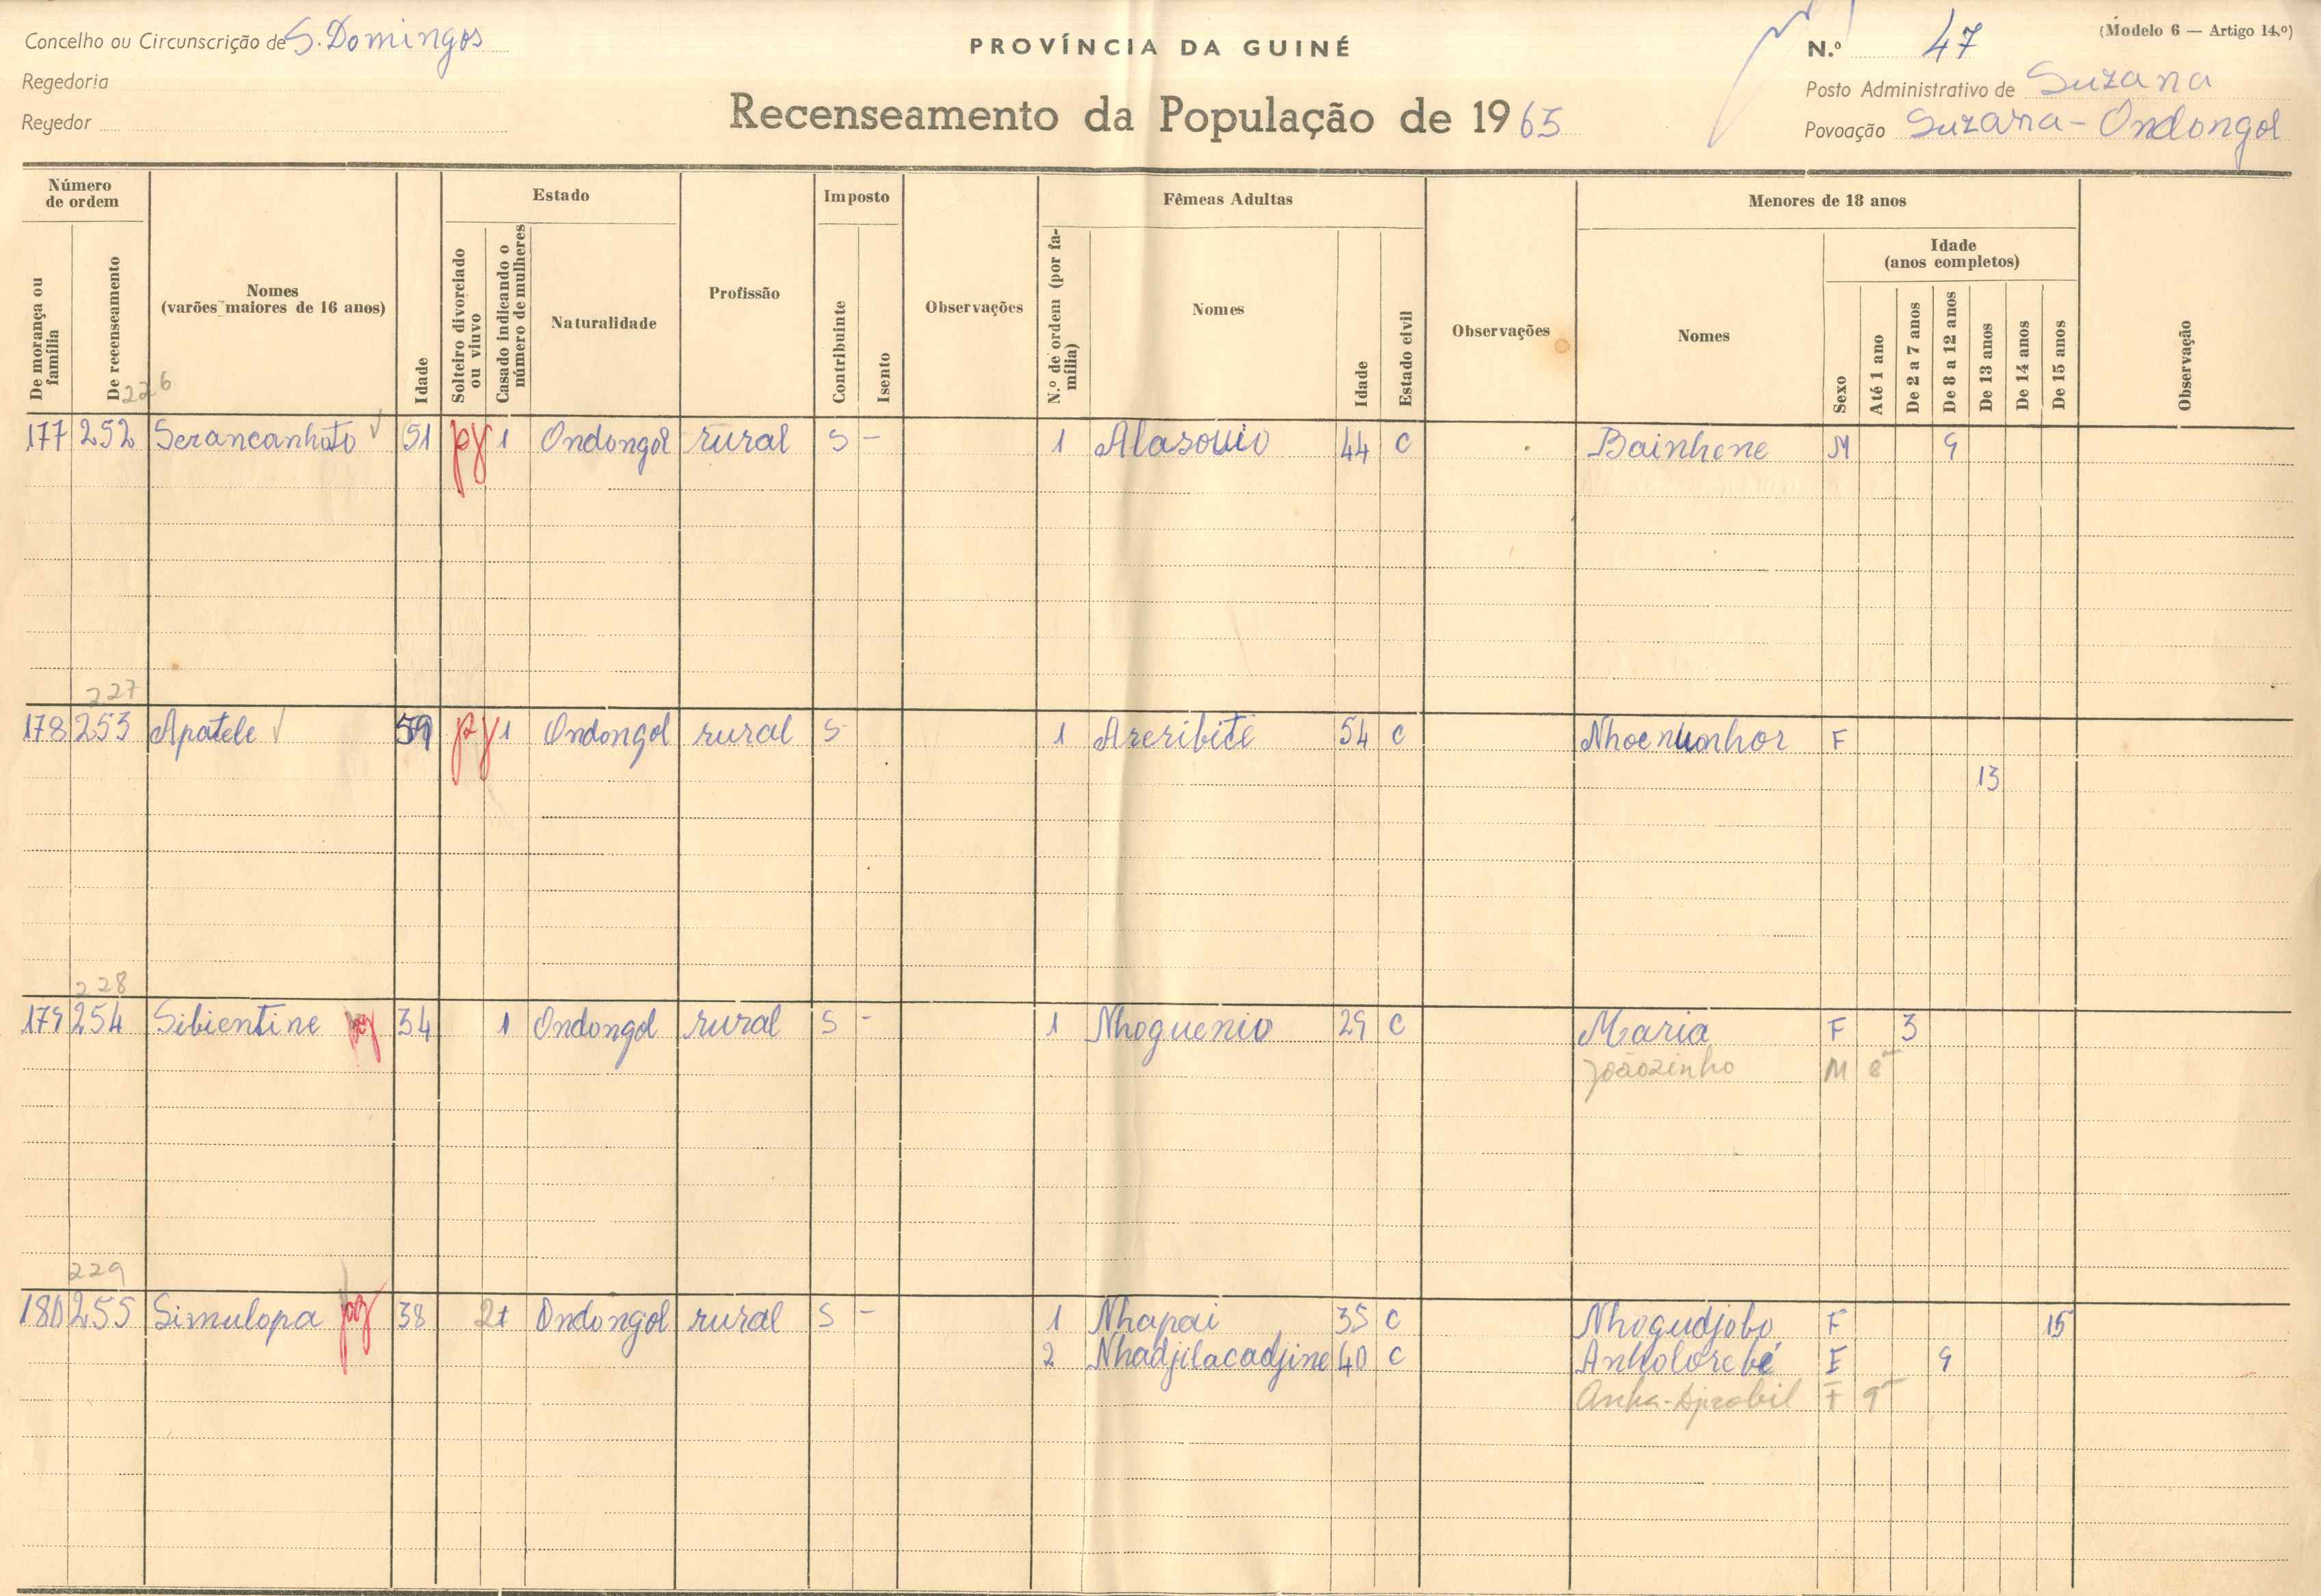 Concelho ou Circunscrição de S. Domingos
Regedoria
Regedor
PROVÍNCIA DA GUINÉ
Recenseamento da População de 1965
(Modelo 6 — Artigo 14.º)
N.º 47
Posto Administrativo de Suzana
Povoação Suzana - Ondongol
Número de ordem
De morança ou família
De recenseamento
Nomes
(varões maiores de 16 anos)
Idade
Estado
Solteiro divorciado ou viuvo
Casado indicando o número de mulheres
Naturalidade
Profissão
Imposto
Contribuinte
Isento
Observações
Fêmeas Adultas
N.º de ordem (por família)
Nomes
Idade
Estado civil
Observações
Menores de 18 anos
Nomes
Sexo
Idade
(anos completos)
Até 1 ano
De 2 a 7 anos
De 8 a 12 anos
De 13 anos
De 14 anos
De 15 anos
Observação
226
177 252 Serancanhoto 51 pg 1 Ondongol rural S - 1 Alasouio 44 C Bainhene M 9
227
178 253 Apatele 59 pg 1 Ondongol rural S - 1 Areribite 54 C F
13
228
179 254 Sibientine pg 34 1 Ondongol rural S - 1 Nhoguenio 29 C Maria F 3
Joãozinho M 8
229
180 255 Simulopa pg 38 2 Ondongol rural S - 1 Nhapai 35 C Nhogudjobo F 15
2 Nhadjilacadjine 40 C Anholorebé F 9
F 9